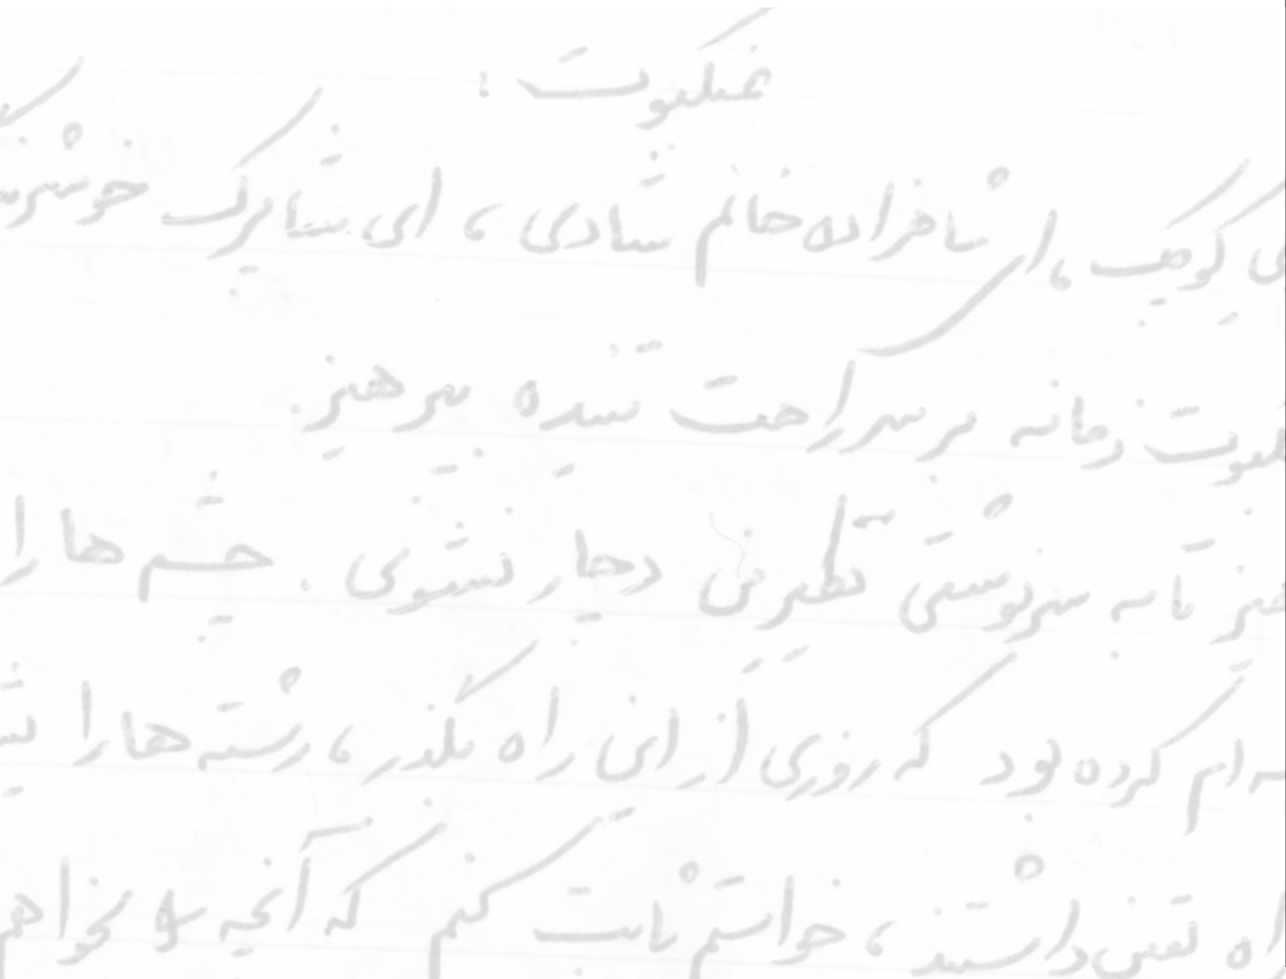 عنکبوت :
کوچک ، از شاهزاده خانم شادی ، ای شاپرک
زمانه بر سر راهت تنیده بپرهیز .
تا به سرنوشتی نظیر من دچار نشوی . چشم ها را
ام کرده بود که روزی از این راه بگذر ، رشته ها را
یقین داشتند ، خواستم ثابت کنم که آنچه را بخواهم